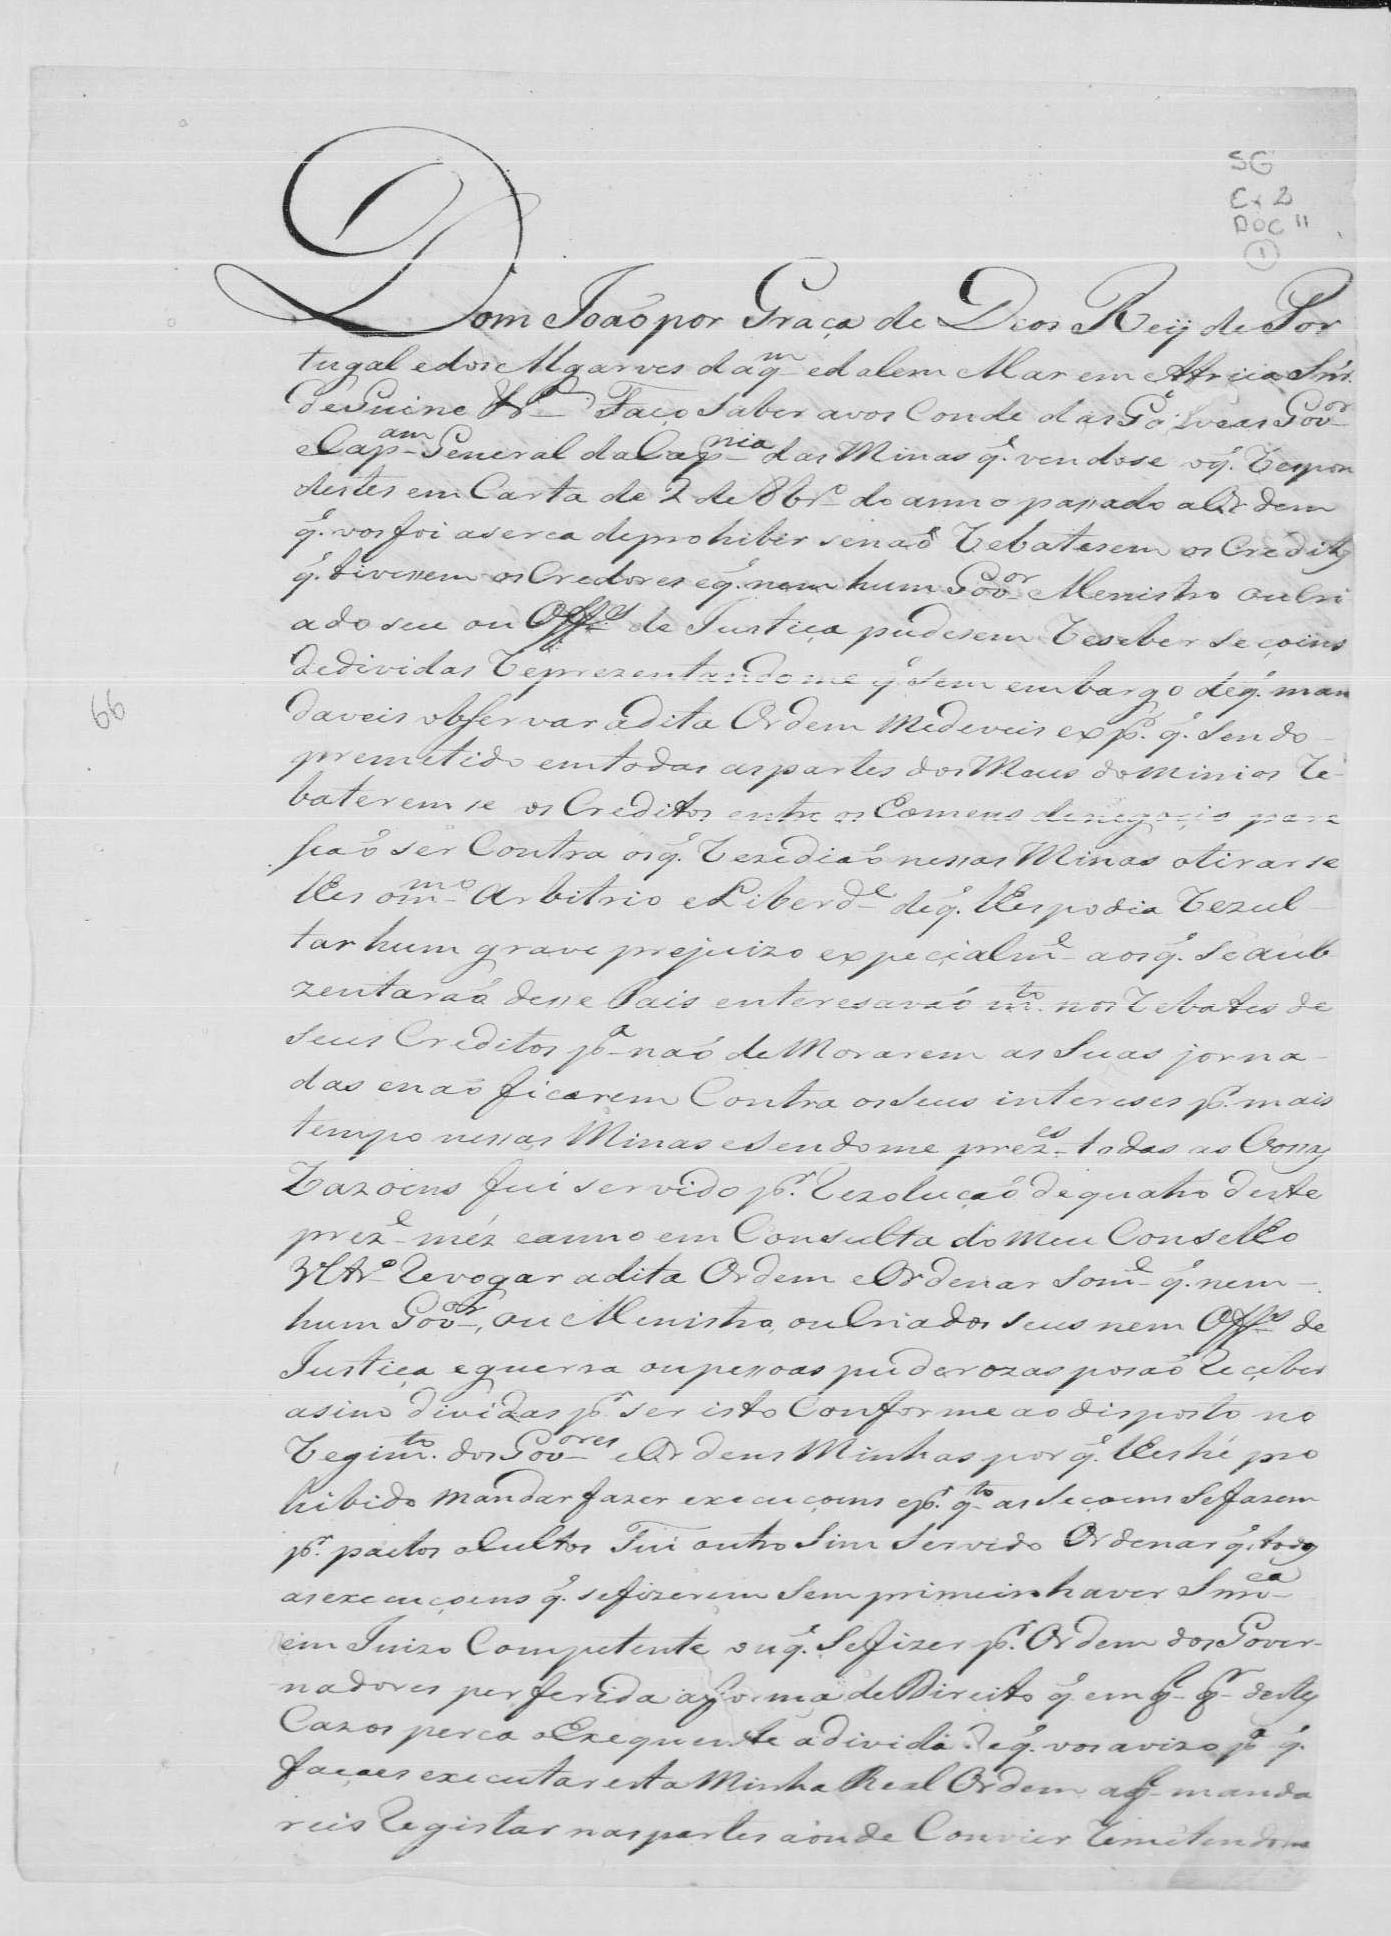 SG
Cx 2
DOC 11
1
Dom João por Graça de Deos Reij de Por
tugal e dos Algarves daq.m e dalem Mar em Africa Snr.
de Guine &.a Faço saber avos Conde das Galveas Gov.or
e Cap.am General da Cap.nia das Minas q.e vendose oq. Respon
destes em Carta de 2 de 8br.o do anno passado a Ordem
q.e vos foi aserca de prohibir senaõ Rebatesem os Creditos
q.e tivessem os Credores e q.e nem hum Gov.or Menistro ou Cri
ado seu ou Off.es de Justiça pudesem Reseber Seçoins
de dividas Reprezentandome q.e sem embargo de q.e man
daveis observar a dita Ordem me deveis exp.r q.e sendo
premetido em todas as partes dos Meus dominios Re
baterem se os Creditos entre os Eomens de negoçio pare
sia ser Contra os q.e Rezediaõ nessas Minas o tirar se
lles o m.mo Arbitrio e Liberd.e de q.e lles podia Rezul
tar hum grave prejuizo expecialm.e aos q.e se aub
zentaraõ desse Pais enteresavaõ m.to nos Rebates de
seus Creditos p.a naõ deMorarem as Suas jorna
das e naõ ficarem Contra os seus intereses p.r mais
tempo nessas Minas e sendome prez.es todas as
Razoens fui servido p.r Rezoluçaõ de quatro deste
prez.e méz e anno em Consulta do Meu Consello
Vltr.o Revogar a dita Ordem e Ordenar som.e q.e nem
hum Gov.or, ou Menistro, ou Criados seus nem Off.es de
Justiça e guerra ou pessoas puderozas posaõ Reçeber
asino dividas p.r ser isto Conforme ao disposto no
Regim.to dos Gov.ores e Ordens Minhas por q.e lles hé pro
hibido mandar fazer execuçoens e p.r q.to as seçoens se fazem
p.r pactos oCultos Fui outro Sim Servido Ordenar q.e todas
as execuçoens q.e se fizerem Sem primeiro haver Snn.ca
em Juizo Competente ou q.e Se fizer p.r Ordem dos Gover
nadores perferida a forma de Direito q.e em q.l q.r destes
Cazos perca o Exequente a divida De q.e vos avizo p.a q.e
façaes executar esta Minha Real Ordem a q.l manda
reis Registar nas partes aonde Convier Remetendome
66